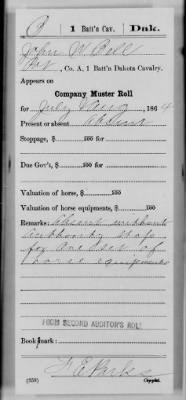 B | 1 Batt'n Cav. | Dak.
John W. Bell
Pvt, Co. A, 1 Batt'n Dakota Cavalry.
Appears on
Company Muster Roll
for July & Aug, 1864
Present or absent Absent
Stoppage, $ 100 for
Due Gov't, $ 100 for
Valuation of horse, $ 100
Valuation of horse equipments, $ 100
Remarks: Absent without
authority stop
for one set of
horse equipments
FROM SECOND AUDITOR'S ROLL
Book mark:
(358) Copyist.